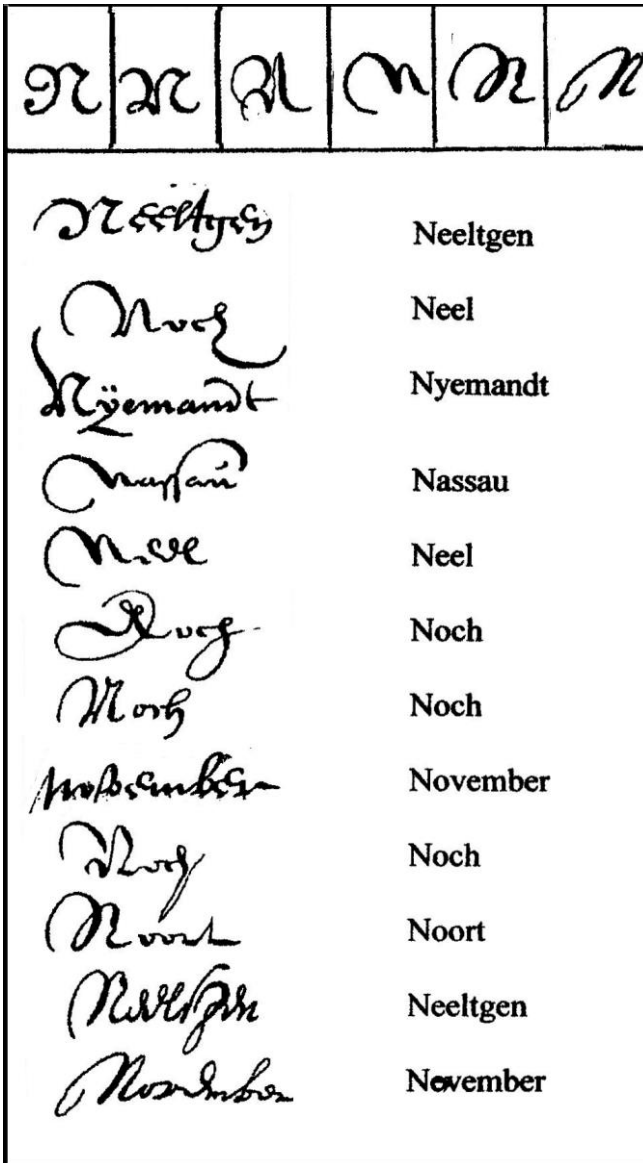 N N N N N N
Neeltgen Neeltgen
Noch Neel
Nÿemandt Nyemandt
Nassau Nassau
Neel Neel
Noch Noch
Noch Noch
November November
Noch Noch
Noort Noort
Neeltgen Neeltgen
November November